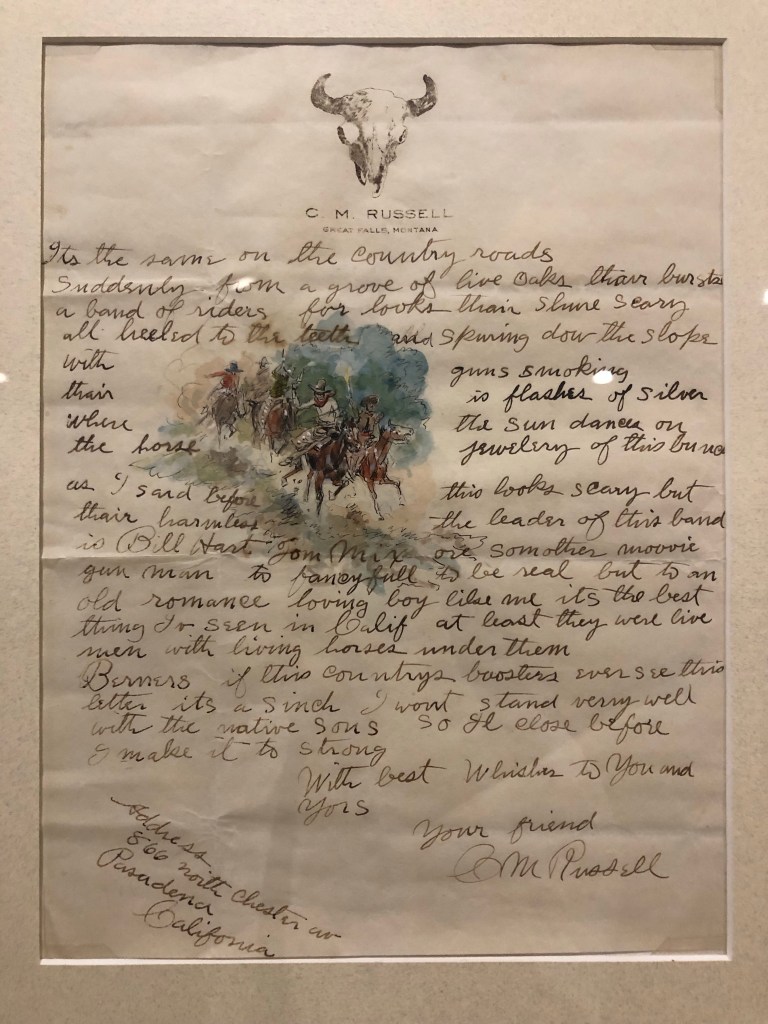 C. M. RUSSELL
GREAT FALLS, MONTANA
Its the same on the country roads
Suddenly from a grove of live Oaks thair bursts
a band of riders for looks thair shure scary
all heeled to the teeth and spuring dow the slope
with guns smoking
thair is flashes of silver
where the sun dances on
the horse jewelery of this bunch
as I said before this looks scary but
thair harmless the leader of this band
is Bill Hart Tom Mix ore somother moovie
gun man to fancyfull to be real but to an
old romance loving boy like me its the best
thing Iv seen in Calif at least they were live
men with living horses under them
Berners if this countrys boosters ever see this
letter its a sinch I wont stand verry well
with the native sons so Il close before
I make it to strong
With best Whishes to You and
Yors
Your friend
CM Russell
Address
866 north Chester av
Pasadena
California